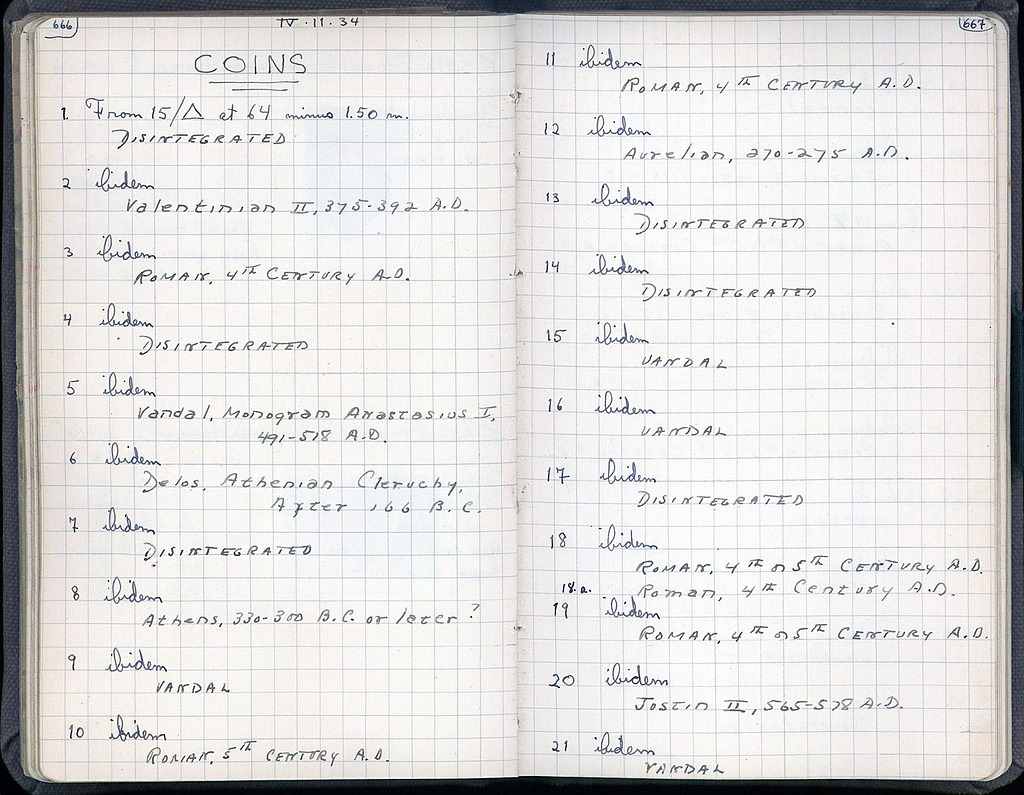 666
IV·11·34
COINS
1. From 15/Δ at 64 minus 1.50 m.
DISINTEGRATED
2 ibidem
Valentinian II, 375-392 A.D.
3 ibidem
ROMAN, 4TH CENTURY A.D.
4 ibidem
DISINTEGRATED
5 ibidem
Vandal, Monogram Anastasius I,
491-518 A.D.
6 ibidem
Delos, Athenian Cleruchy,
After 166 B.C.
7 ibidem
DISINTEGRATED
8 ibidem
Athens, 330-300 B.C. or later?
9 ibidem
VANDAL
10 ibidem
ROMAN, 5TH CENTURY A.D.
667
11 ibidem
ROMAN, 4TH CENTURY A.D.
12 ibidem
Aurelian, 270-275 A.D.
13 ibidem
DISINTEGRATED
14 ibidem
DISINTEGRATED
15 ibidem
VANDAL
16 ibidem
VANDAL
17 ibidem
DISINTEGRATED
18 ibidem
ROMAN, 4TH OR 5TH CENTURY A.D.
18.a. Roman, 4TH Century A.D.
19 ibidem
ROMAN, 4TH OR 5TH CENTURY A.D.
20 ibidem
Justin II, 565-578 A.D.
21 ibidem
VANDAL